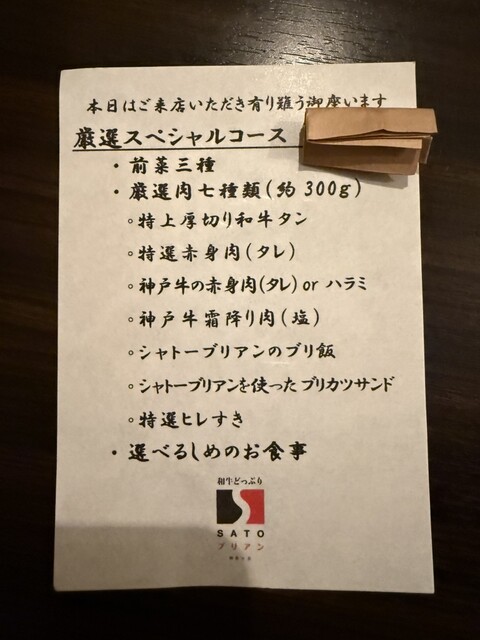 本日はご来店いただき有り難う御座います
厳選スペシャルコース
・前菜三種
・厳選肉七種類(約300g)
○特上厚切り和牛タン
○特選赤身肉(タレ)
○神戸牛の赤身肉(タレ)or ハラミ
○神戸牛霜降り肉(塩)
○シャトーブリアンのブリ飯
○シャトーブリアンを使ったブリカツサンド
○特選ヒレすき
・選べるしめのお食事
和牛どっぷり
SATO
ブリアン